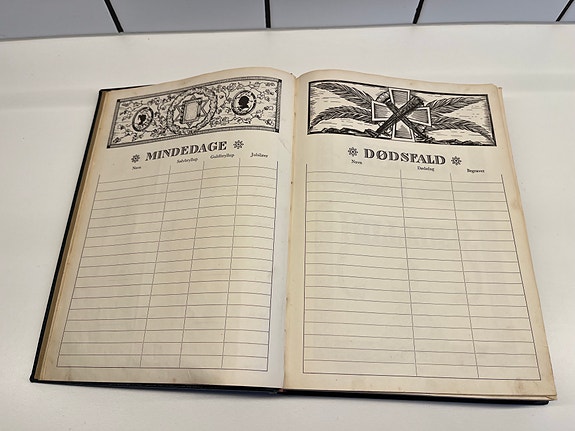 MINDEDAGE
Navn Sølvbryllup Guldbryllup Jubilæer
DØDSFALD
Navn Dødsdag Begravet